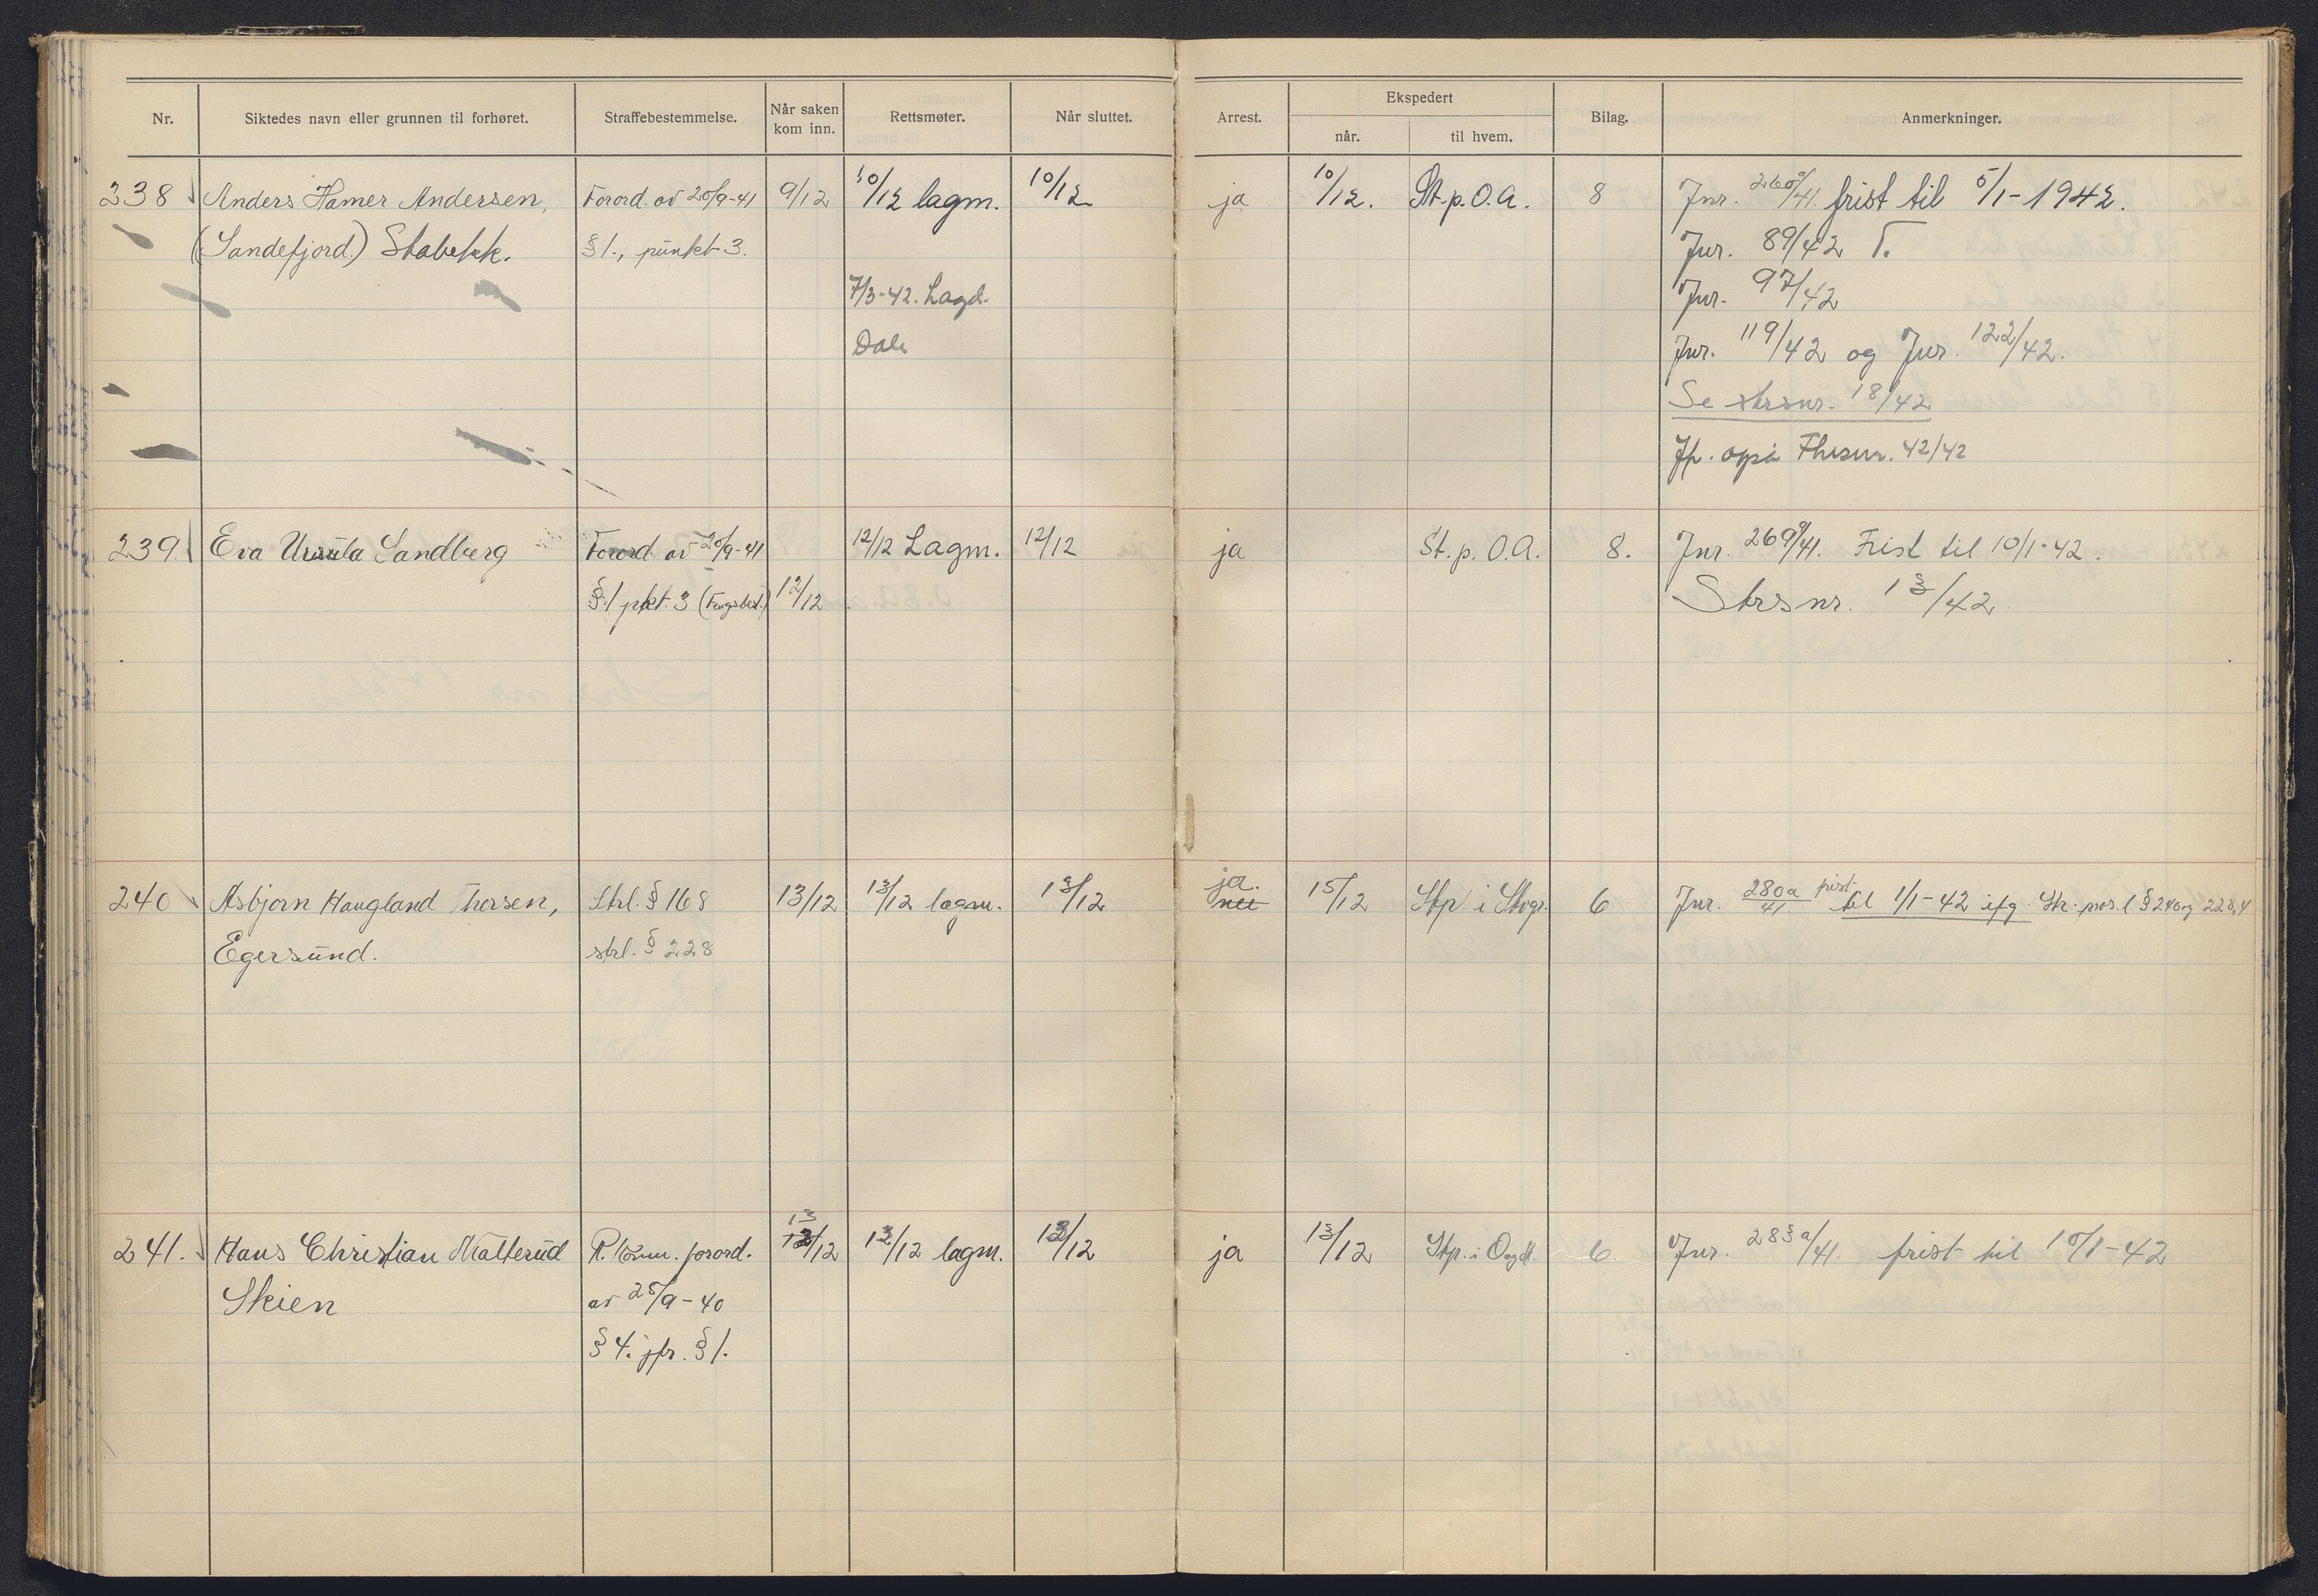 Nr. Siktedes navn eller grunnen til forhøret. Straffebestemmelse. Når saken kom inn. Rettsmøter. Når sluttet. Arrest. Ekspedert når. til hvem. Bilag. Anmerkninger.
238 Anders Hamer Andersen, Forord. av 20/9-41 9/12 10/12 lagm. 10/12 ja 10/12. St.p. O.A. 8 Jnr. 260a/41. frist til 5/1-1942.
(Sandefjord.) Stabekk. §1., punkt 3. Jnr. 89/42 T.
7/3-42. Lagd. Jnr. 97/42
Dale Jnr. 119/42 og Jnr. 122/42.
Se strsnr. 18/42
Jfr. også 42/42
239. Eva Ursula Sandberg Forord av 20/9-41 12/12 Lagm. 12/12 ja St.p. O.A. 8. Jnr. 269a/41. Frist til 10/1-42.
§1 pkt. 3 12/12 Strsnr. 13/42
240 Asbjørn Haugland Thorsen, Strl. § 168 13/12 13/12 lagm. 13/12 ja. nei 15/12 Stp. i Stvgr. 6 Jnr. 280a/41 frist til 1/1-42 ifg. Str. pros. l. § 240 og 228,4
Egersund. strl. § 228
241. Hans Christian Malterud R. Komm. forord. 13/12 13/12 lagm. 13/12 ja 13/12 Stp. i 6. Jnr. 283a/41. frist til 10/1-42
Skien av 25/9-40
§ 4. jfr. § 1.